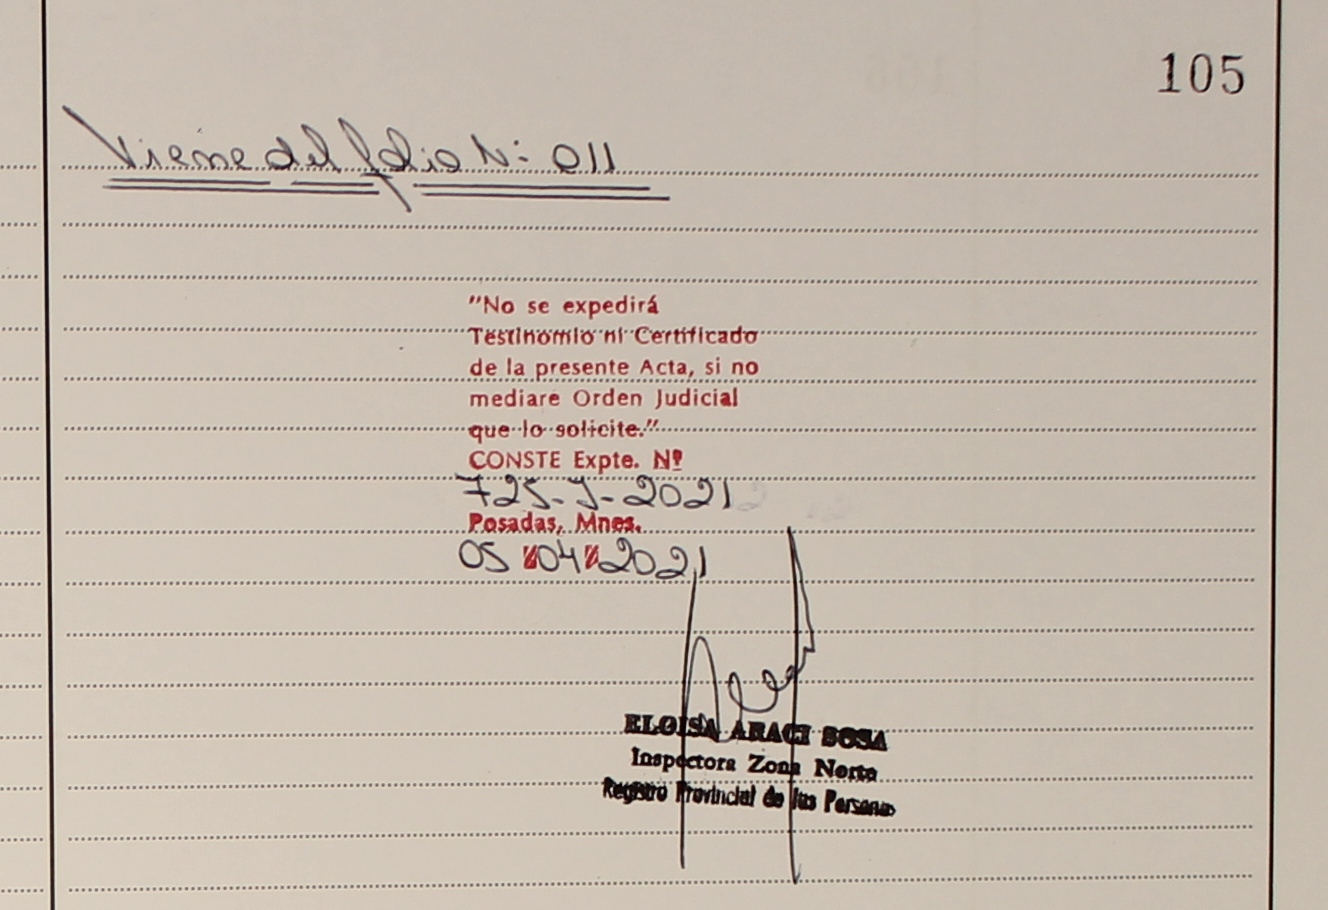 105
Viene del folio N: 011
"No se expedirá
Testinomio ni Certificado
de la presente Acta, si no
mediare Orden Judicial
que lo solicite."
CONSTE Expte. Nº
725-J-2021
Posadas, Mnes.
05 / 04 / 2021
ELOISA ARACI SOSA
Inspectora Zona Norte
Registro Provincial de las Personas